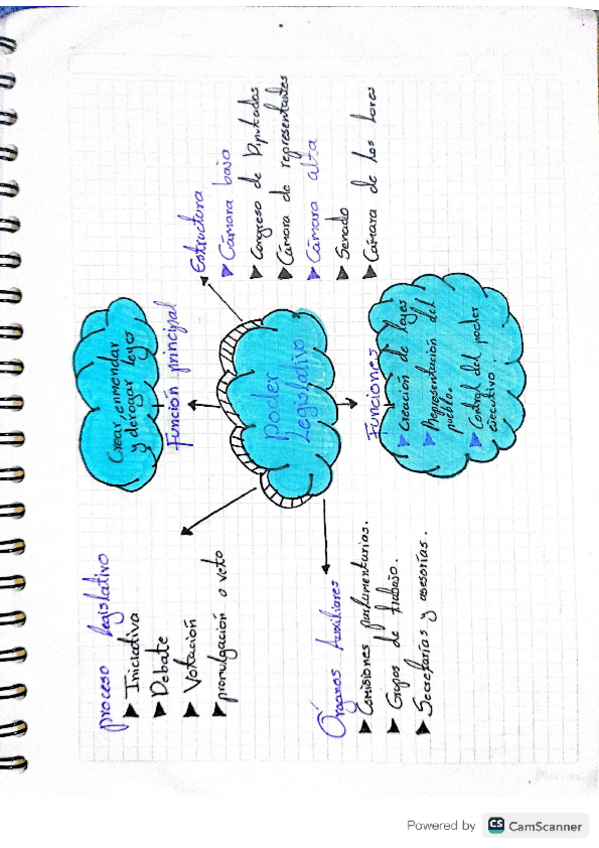 Poder
Legislativo
Función principal
Crear, enmendar
y derogar leyes
Estructura
Cámara baja
Congreso de Diputados
Cámara de representantes
Cámara alta
Senado
Cámara de los Lores
Funciones
Creación de leyes
Representación del
pueblo.
Control del poder
ejecutivo.
proceso legislativo
Iniciativa
Debate
Votación
promulgación o veto
Órganos Auxiliares
Comisiones parlamentarias.
Grupos de trabajo.
Secretarías y asesorías.
Powered by CS CamScanner